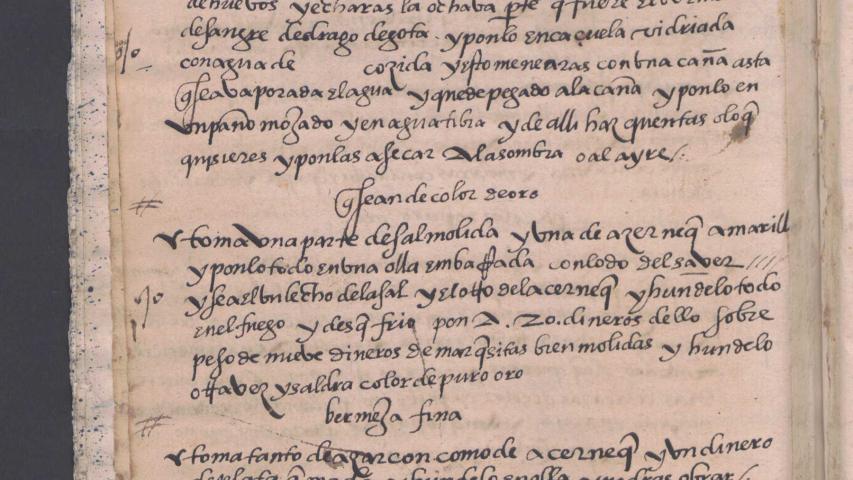 de huevos y echaras la ochava pte q fuere
de sangre de drago de gota . y ponlo en caçuela vidriada
con agua de cozida y esto menearas con vna caña asta
q sea vaporada el agua y quede pegado a la caña y ponlo en
vn paño mojado y en agua tibia y de alli haz quentas o lo q
quisieres y ponlas a secar A la sombra o al ayre /.
q sean de color de oro
# 
y toma vna parte de sal molida y vna de azerneq amarill
y ponlo todo en vna olla embaRada con lodo del saver ///
y sea el vn lecho de la sal y el otro de la cerneq y hundelo todo
en el fuego y desq frio pon A . 20. dineros dello sobre
peso de nueve dineros de marqsitas bien molidas y hundelo
otra vez y saldra color de puro oro
bermeja fina
#
y toma tanto de agarcon como de acerneq y vn dinero
de plata q y hundelo en olla y podras obrar /.